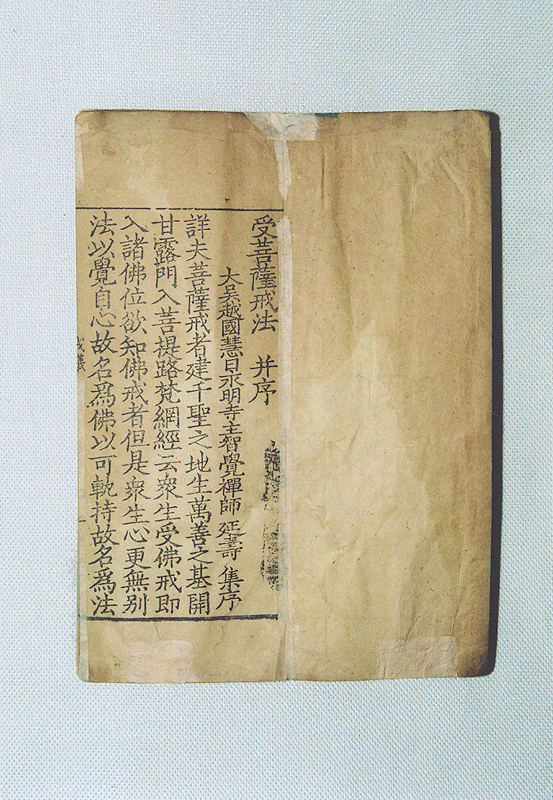 受菩薩戒法 并序
大吳越國慧日永明寺主智覺禪師延壽集序
詳夫菩薩戒者建千聖之地生萬善之基開
甘露門入菩提路梵網經云衆生受佛戒即
入諸佛位欲知佛戒者但是衆生心更無别
法以覺自心故名爲佛以可軌持故名爲法